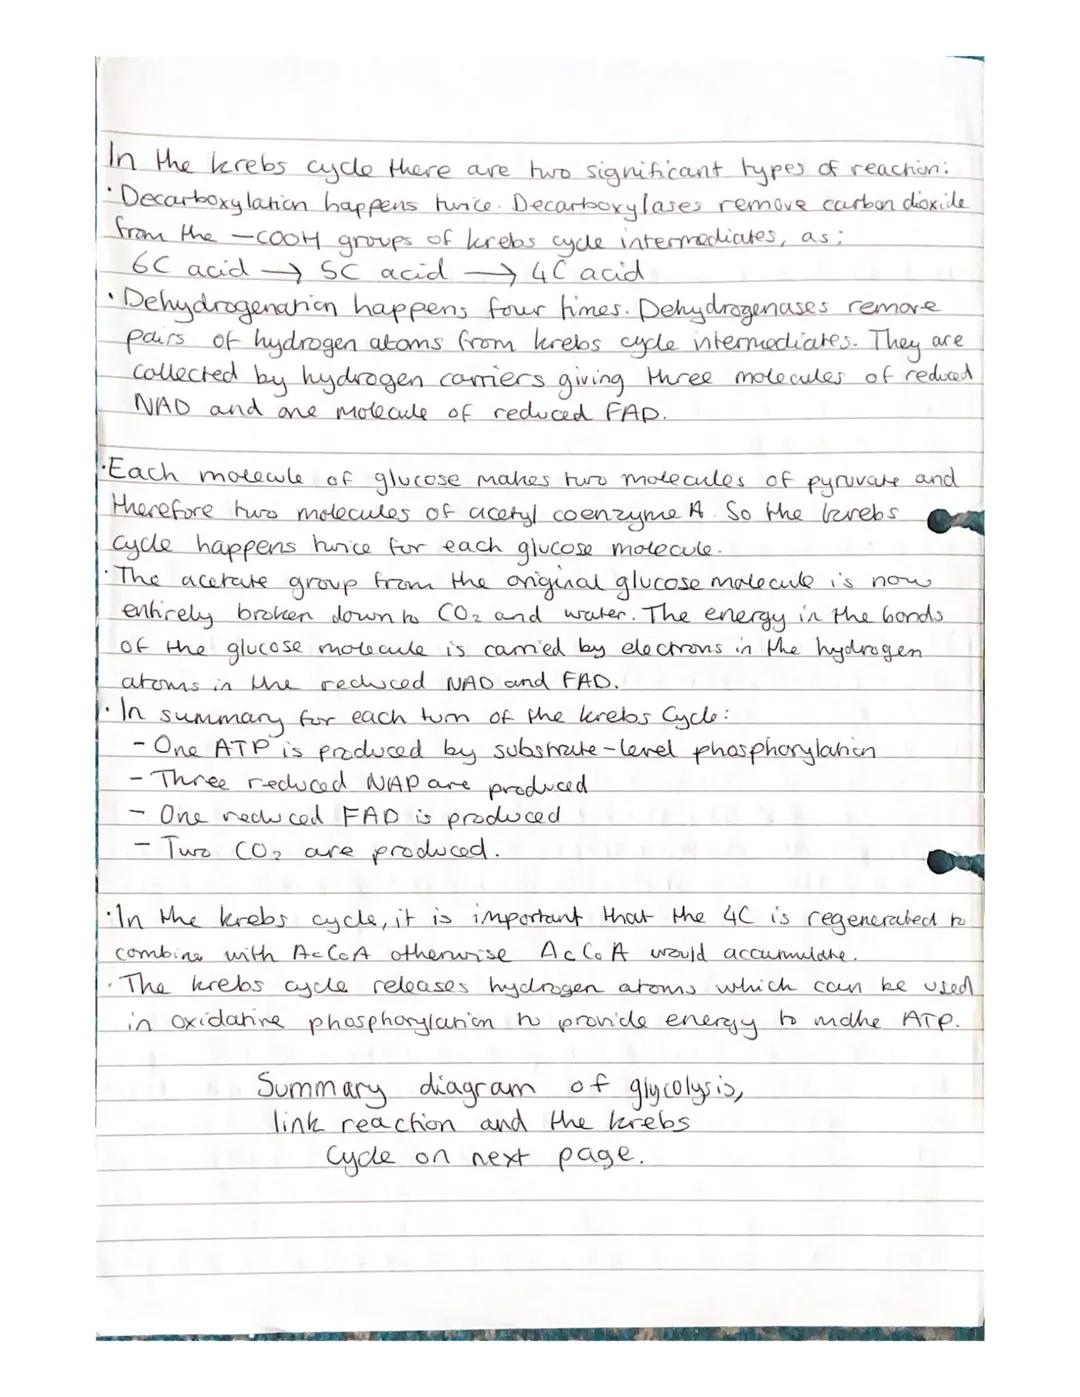 In the krebs cycle there are two significant types of reaction:
· Decarboxylation happens twice. Decarboxylases remove carbon dioxide
from the -COOH groups of krebs cycle intermediates, as:
6C acid → 5C acid → 4C acid
· Dehydrogenation happens four times. Dehydrogenases remove
pairs of hydrogen atoms from krebs cycle intermediates. They are
collected by hydrogen carriers giving three molecules of reduced
NAD and one molecule of reduced FAD.
· Each molecule of glucose makes two molecules of pyruvate and
therefore two molecules of acetyl coenzyme A. So the krebs
cycle happens twice for each glucose molecule.
· The acetate group from the original glucose molecule is now
entirely broken down to CO₂ and water. The energy in the bonds
of the glucose molecule is carried by electrons in the hydrogen
atoms in the reduced NAD and FAD.
· In summary for each turn of the krebs Cycle:
- One ATP is produced by substrate-level phosphorylation
- Three reduced NAD are produced
- One reduced FAD is produced
- Two CO₂ are produced.
· In the krebs cycle, it is important that the 4C is regenerated to
combine with AcCoA otherwise AcCoA would accumulate.
· The krebs cycle releases hydrogen atoms which can be used
in oxidative phosphorylation to provide energy to make ATP.
Summary diagram of glycolysis,
link reaction and the krebs
Cycle on next page.